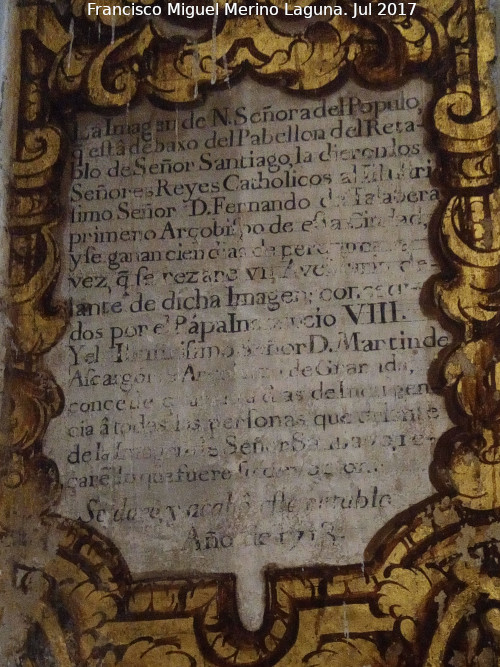 Francisco Miguel Merino Laguna. Jul 2017
La Imagen de N. Señora del Populo,
q̃ està debaxo del Pabellon del Reta-
blo de Señor Santiago, la dieron los
Señores Reyes Catholicos al
timo Señor D. Fernando de Talabera
primero Arçobispo de esta Ciudad,
y se ganan cien dias de cada
vez, q̃ se rezare vn Ave de-
lante de dicha Imagen; conçedi-
dos por el Pápa Innocencio VIII.
Y el Señor D. Martin de
Ascargorta Arçobispo de Granada,
concede dias de Indulgen
cia â todas las personas que delante
de la Imagen de Señor Santiago, re-
çarẽ lo que fuere su devocion.
Se doro y acabó este retablo
Año de